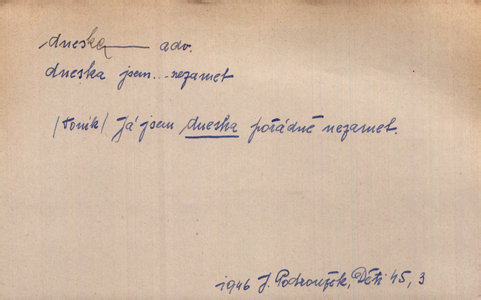 dneska — adv.
dneska jsem... nezamet
/Toník/ Já jsem dneska pořádně nezamet.
1946 J. Podroužek, Děti 45, 3